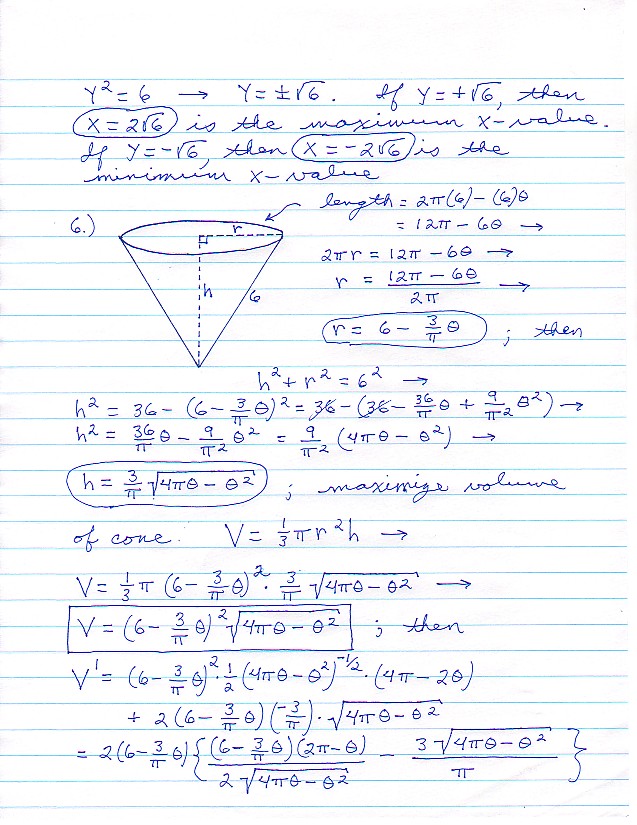 Y² = 6 → Y = ±√6. If Y = +√6, then
X = 2√6 is the maximum x-value.
If Y = -√6, then X = -2√6 is the
minimum x-value
6.)
r
h
6
length = 2π(6) - (6)θ
= 12π - 6θ →
2πr = 12π - 6θ →
r = (12π - 6θ)/2π →
r = 6 - 3/π θ ; then
h² + r² = 6² →
h² = 36 - (6 - 3/π θ)² = 36 - (36 - 36/π θ + 9/π² θ²) →
h² = 36/π θ - 9/π² θ² = 9/π² (4πθ - θ²) →
h = 3/π √(4πθ - θ²) ; maximize volume
of cone. V = 1/3 πr²h →
V = 1/3 π (6 - 3/π θ)² · 3/π √(4πθ - θ²) →
V = (6 - 3/π θ)² √(4πθ - θ²) ; then
V' = (6 - 3/π θ)² · 1/2 (4πθ - θ²)^(-1/2) · (4π - 2θ)
+ 2(6 - 3/π θ)(-3/π) · √(4πθ - θ²)
= 2(6 - 3/π θ){ (6 - 3/π θ)(2π - θ) / 2√(4πθ - θ²) - 3√(4πθ - θ²) / π }